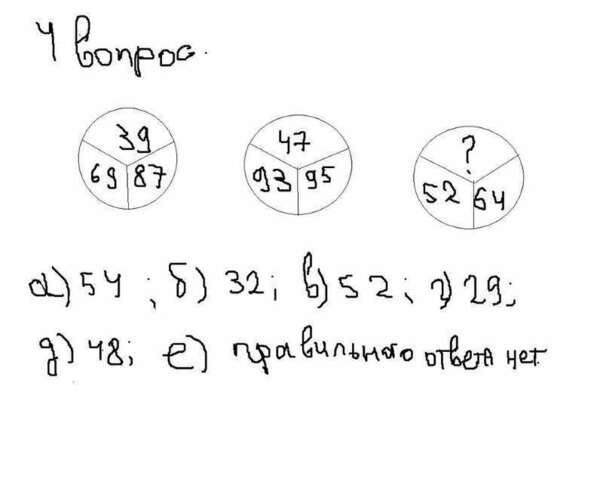 4 вопрос.
39
69 87
47
93 95
?
52 64
а) 54; б) 32; в) 52; г) 29;
д) 48; е) правильного ответа нет